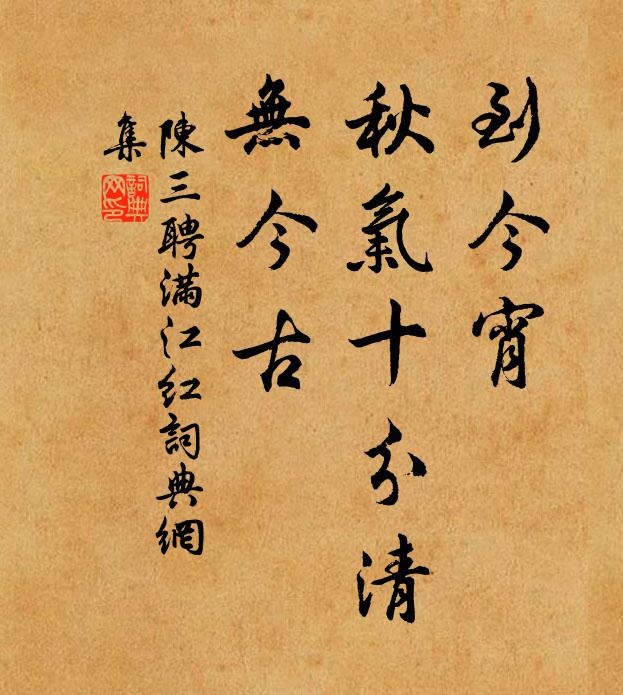 到今宵
秋氣十分清
無今古
陳三聘滿江紅詞典網
集
詞典
网印